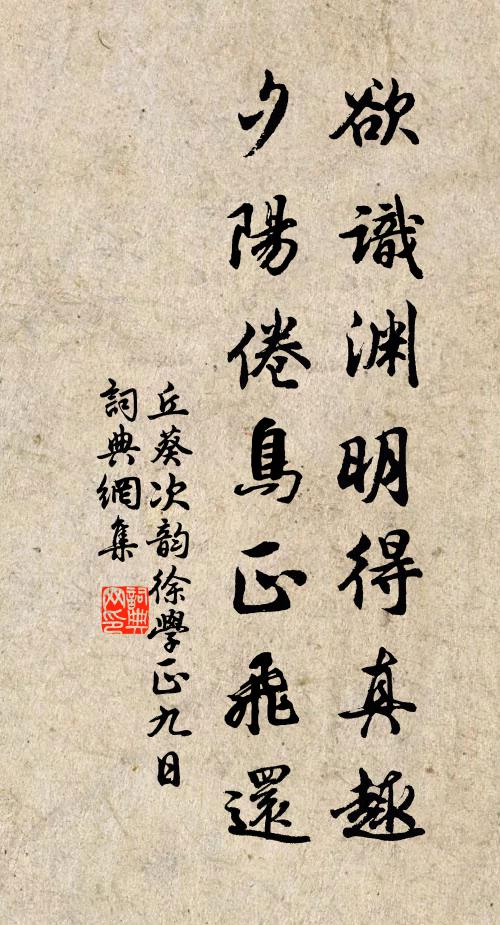 欲識渊明得真趣
夕陽倦鳥正飛還
丘葵次韵徐學正九日
詞典網集
詞典
网印